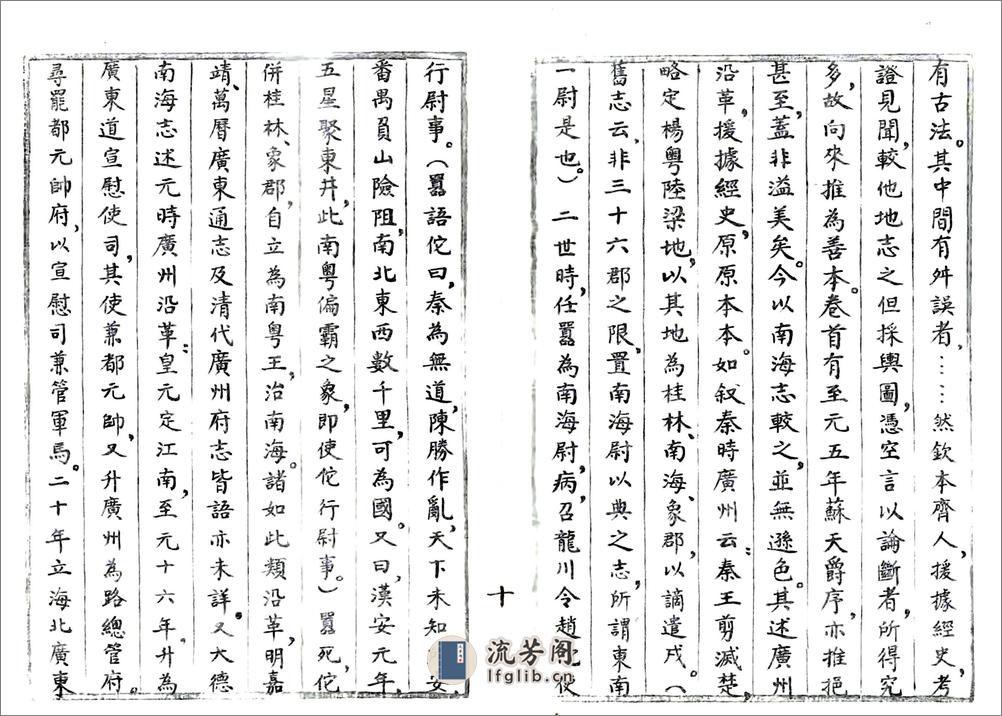 有古法。其中間有舛誤者，……然欽本齊人，援據經史，考
證見聞，較他地志之但採輿圖，憑空言以論斷者，所得究
多，故向來推為善本。卷首有至元五年蘇天爵序，亦推挹
甚至，蓋非溢美矣。今以南海志較之，並無遜色。其述廣州
沿革，援據經史，原原本本。如敘秦時廣州云：秦王剪滅楚，
略定楊粤陸梁地，以其地為桂林、南海、象郡，以謫遣戍。（
舊志云，非三十六郡之限，置南海尉以典之志，所謂東南
一尉是也。）二世時，任囂為南海尉，病，召龍川令趙使
十
行尉事。（囂語佗曰，秦為無道，陳勝作亂，天下未知安，
番禺負山險阻，南北東西數千里，可為國。又曰，漢安元年，
五星聚東井，此南粤偏霸之象，即使佗行尉事。）囂死，佗
併桂林、象郡，自立為南粤王，治南海。諸如此類沿革，明嘉
靖、萬曆廣東通志及清代廣州府志皆語亦未詳。又大德
南海志述元時廣州沿革：皇元定江南，至元十六年，升為
廣東道宣慰使司，其使兼都元帥，又升廣州為路總管府。
尋罷都元帥府，以宣慰司兼管軍馬。二十年立海北廣東
流芳阁
lfglib.cn